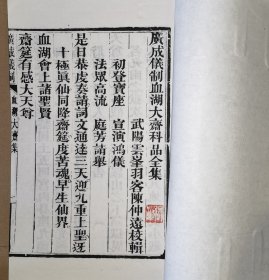 廣成儀制血湖大齋科品全集
武陽雲峯羽客陳仲遠校輯
初登寶座　宣演鴻儀
法眾高流　庭芳請舉
是日恭虔奏請詞文通達三天迎九重上聖迓
十極真仙同降齋筵度苦魂早生仙界
血湖會上諸聖賢
齋筵有感大天尊
廣成儀制　血湖大齋集